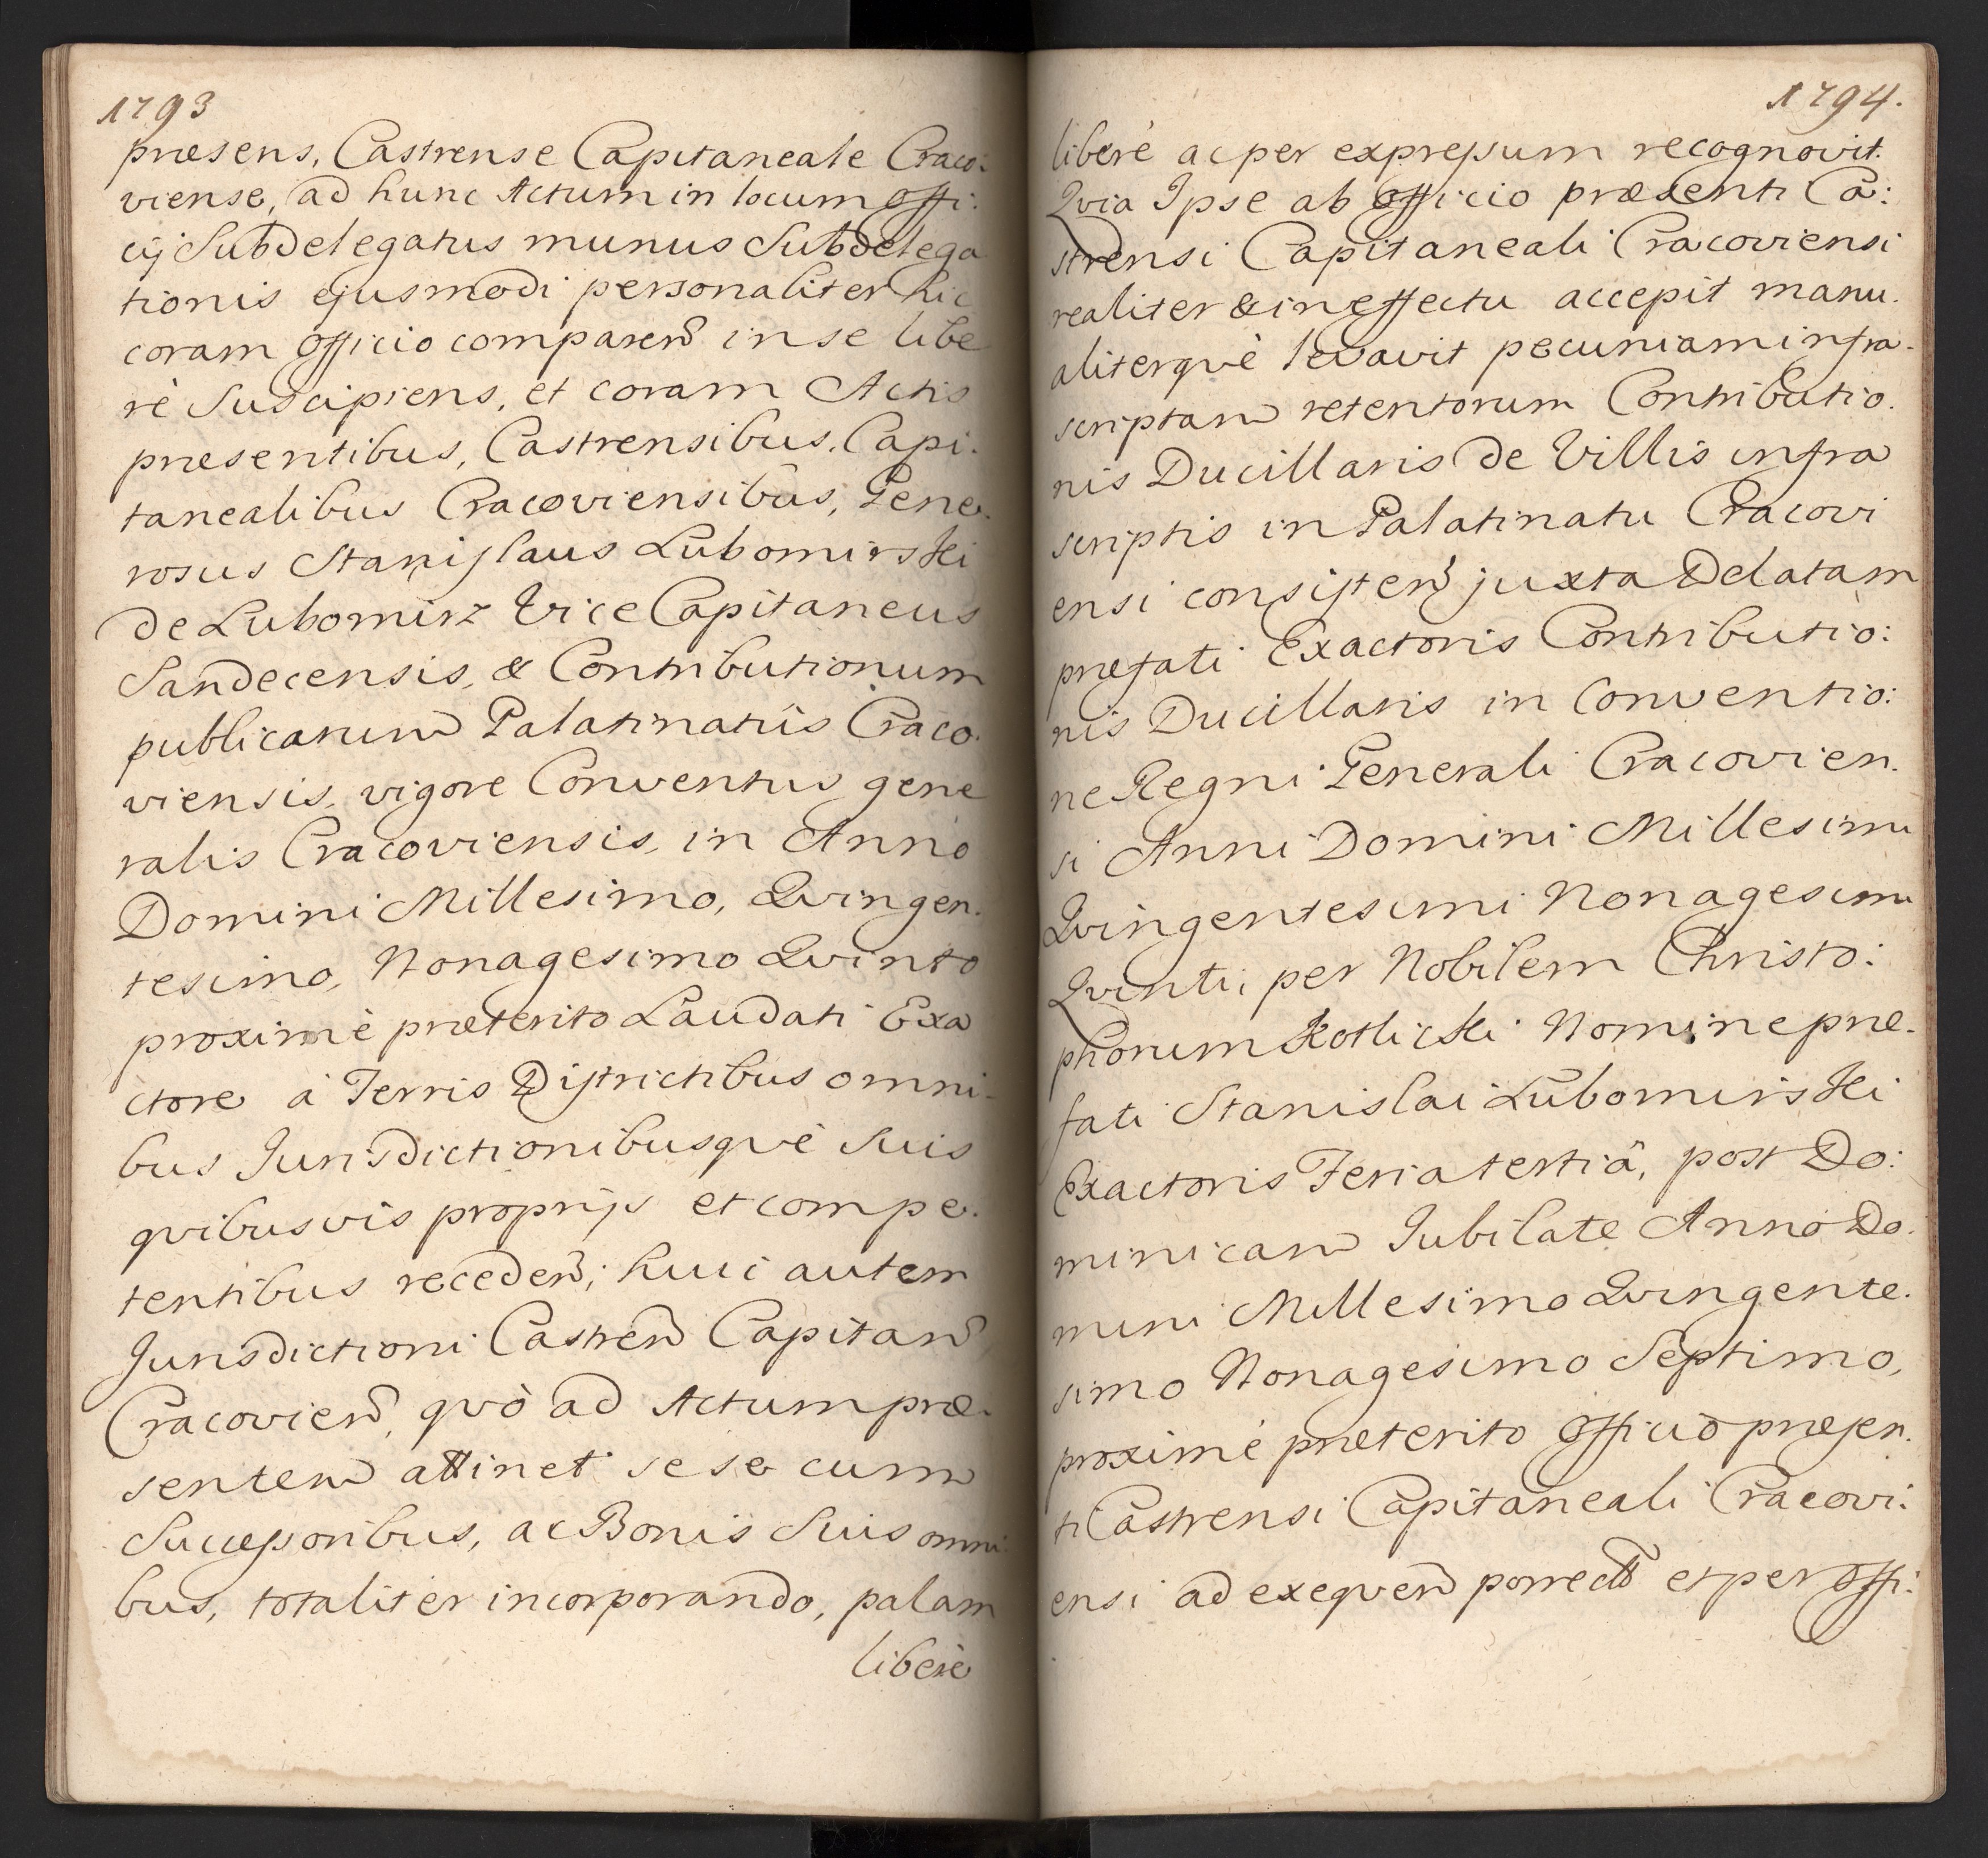 1793
præsens, Castrense Capitaneale Craco:
viense, ad hunc Actum in locum Offi:
cij Subdelegatus munus Subdelega
tionis ejusmodi personaliter hic
coram Officio comparen̄ in se libe
rè Suscipiens, et coram Actis
præsentibus, Castrensibus, Capi:
tanealibus Cracoviensibus, Gene:
rosus Stanislaus Lubomirski
de Lubomirz Vice Capitaneus
Sandecensis, & Contributionum
publicarum Palatinatûs Craco:
viensis, vigore Conventus gene
ralis Cracoviensis, in Anno
Domini Millesimo, Qvingen:
tesimo, Nonagesimo Qvinto
proximè præterito Laudati Exa
ctore à Terris Districtibus omni:
bus Jurisdictionibusqvè Suis
qvibusvis proprijs et compe:
tentibus receden̄; huic autem
Jurisdictioni Castren̄ Capitan̄
Cracovien̄, qvò ad Actum præ:
sentem attinet sese cum
Successoribus, ac Bonis Suis omni:
bus, totaliter incorporando, palam
liberè
1794.
liberè ac per expressum recognovit.
Qvia Ipse ab Officio præsenti Ca:
strensi Capitaneali Cracoviensi
realiter & in effectu accepit manu:
aliterqvè levavit pecuniam infra:
scriptam retentorum Contributio:
nis Ducillaris de Villis infra
scriptis in Palatinatu Cracovi
ensi consisten̄ juxta Delatam
præfati Exactoris Contributio:
nis Ducillaris in Conventio:
ne Regni Generali Cracovien:
si Anni Domini Millesimi
Qvingentesimi Nonagesimi
Qvinti, per Nobilem Christo:
phorum Kotlicki Nomine præ:
fati Stanislai Lubomirski
Exactoris Feria tertiâ, post Do:
minicam Jubilate Anno Do:
mini Millesimo Qvingente:
simo Nonagesimo Septimo,
proximè præterito Officio præsen:
ti Castrensi Capitaneali Cracovi:
ensi ad exeqven̄ porrect̄ et per Offi: